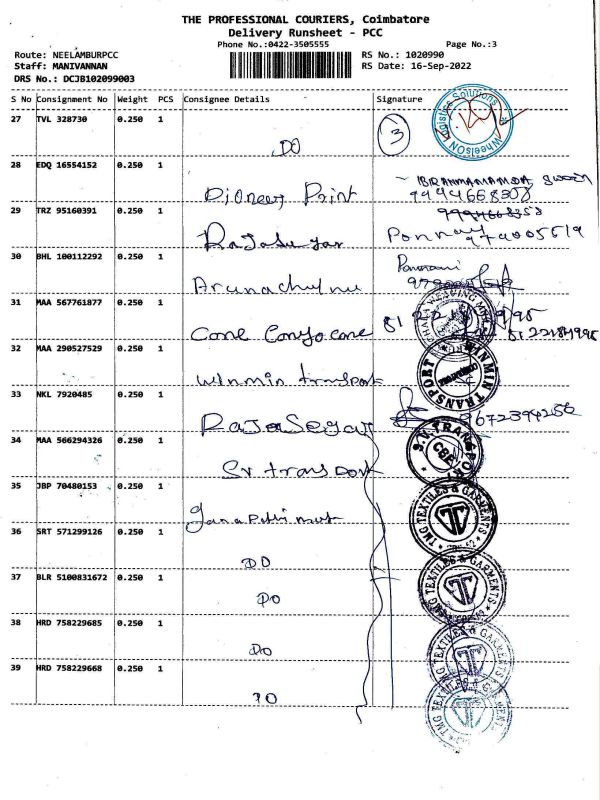 THE PROFESSIONAL COURIERS, Coimbatore
Delivery Runsheet - PCC
Phone No.:0422-3505555 Page No.:3
Route: NEELAMBURPCC RS No.: 1020990
Staff: MANIVANNAN RS Date: 16-Sep-2022
DRS No.: DCJB102099003
S No Consignment No Weight PCS Consignee Details Signature
27 TVL 328730 0.250 1
DO 3 WheelsON Logistics Solutions
28 EDQ 16554152 0.250 1
Pioneer Print 9994668308
29 TRZ 95160391 0.250 1
Rajasugar
30 BHL 100112292 0.250 1
Arunachulnu
31 MAA 567761877 0.250 1
Cone Conyocone 8122184995
32 MAA 290527529 0.250 1
winmin transport WIN MIN TRANSPORT
33 NKL 7920485 0.250 1
RajaSegar
34 MAA 566294326 0.250 1
Sv transport S.V. TRANSPORT CBE
35 JBP 70480153 0.250 1
TMG TEXTILES & GARMENTS
36 SRT 571299126 0.250 1
DO
37 BLR 5100831672 0.250 1
DO TMG TEXTILES & GARMENTS
38 HRD 758229685 0.250 1
DO TMG TEXTILES & GARMENTS
39 HRD 758229668 0.250 1
DO TMG TEXTILES & GARMENTS